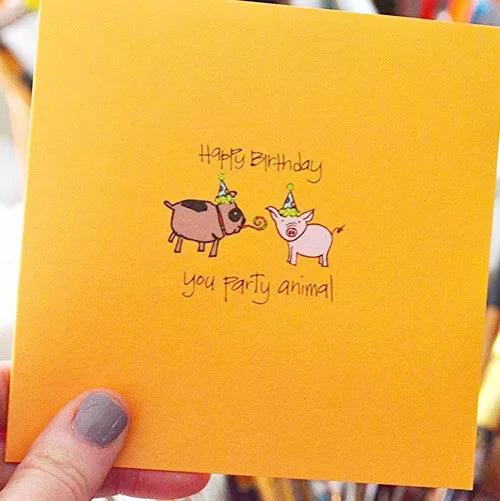 Happy Birthday
you party animal